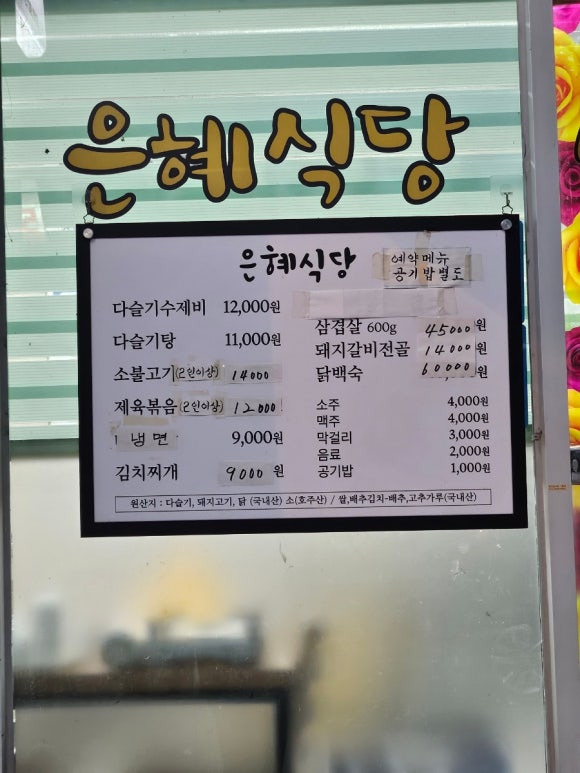 은혜식당
은혜식당
예약메뉴
공기밥별도
다슬기수제비 12,000원
다슬기탕 11,000원
소불고기(2인이상) 14000
제육볶음(2인이상) 12000
냉면 9,000원
김치찌개 9000 원
삼겹살 600g 45000 원
돼지갈비전골 14000 원
닭백숙 60000 원
소주 4,000원
맥주 4,000원
막걸리 3,000원
음료 2,000원
공기밥 1,000원
원산지 : 다슬기, 돼지고기, 닭 (국내산) 소(호주산) / 쌀,배추김치-배추,고추가루(국내산)